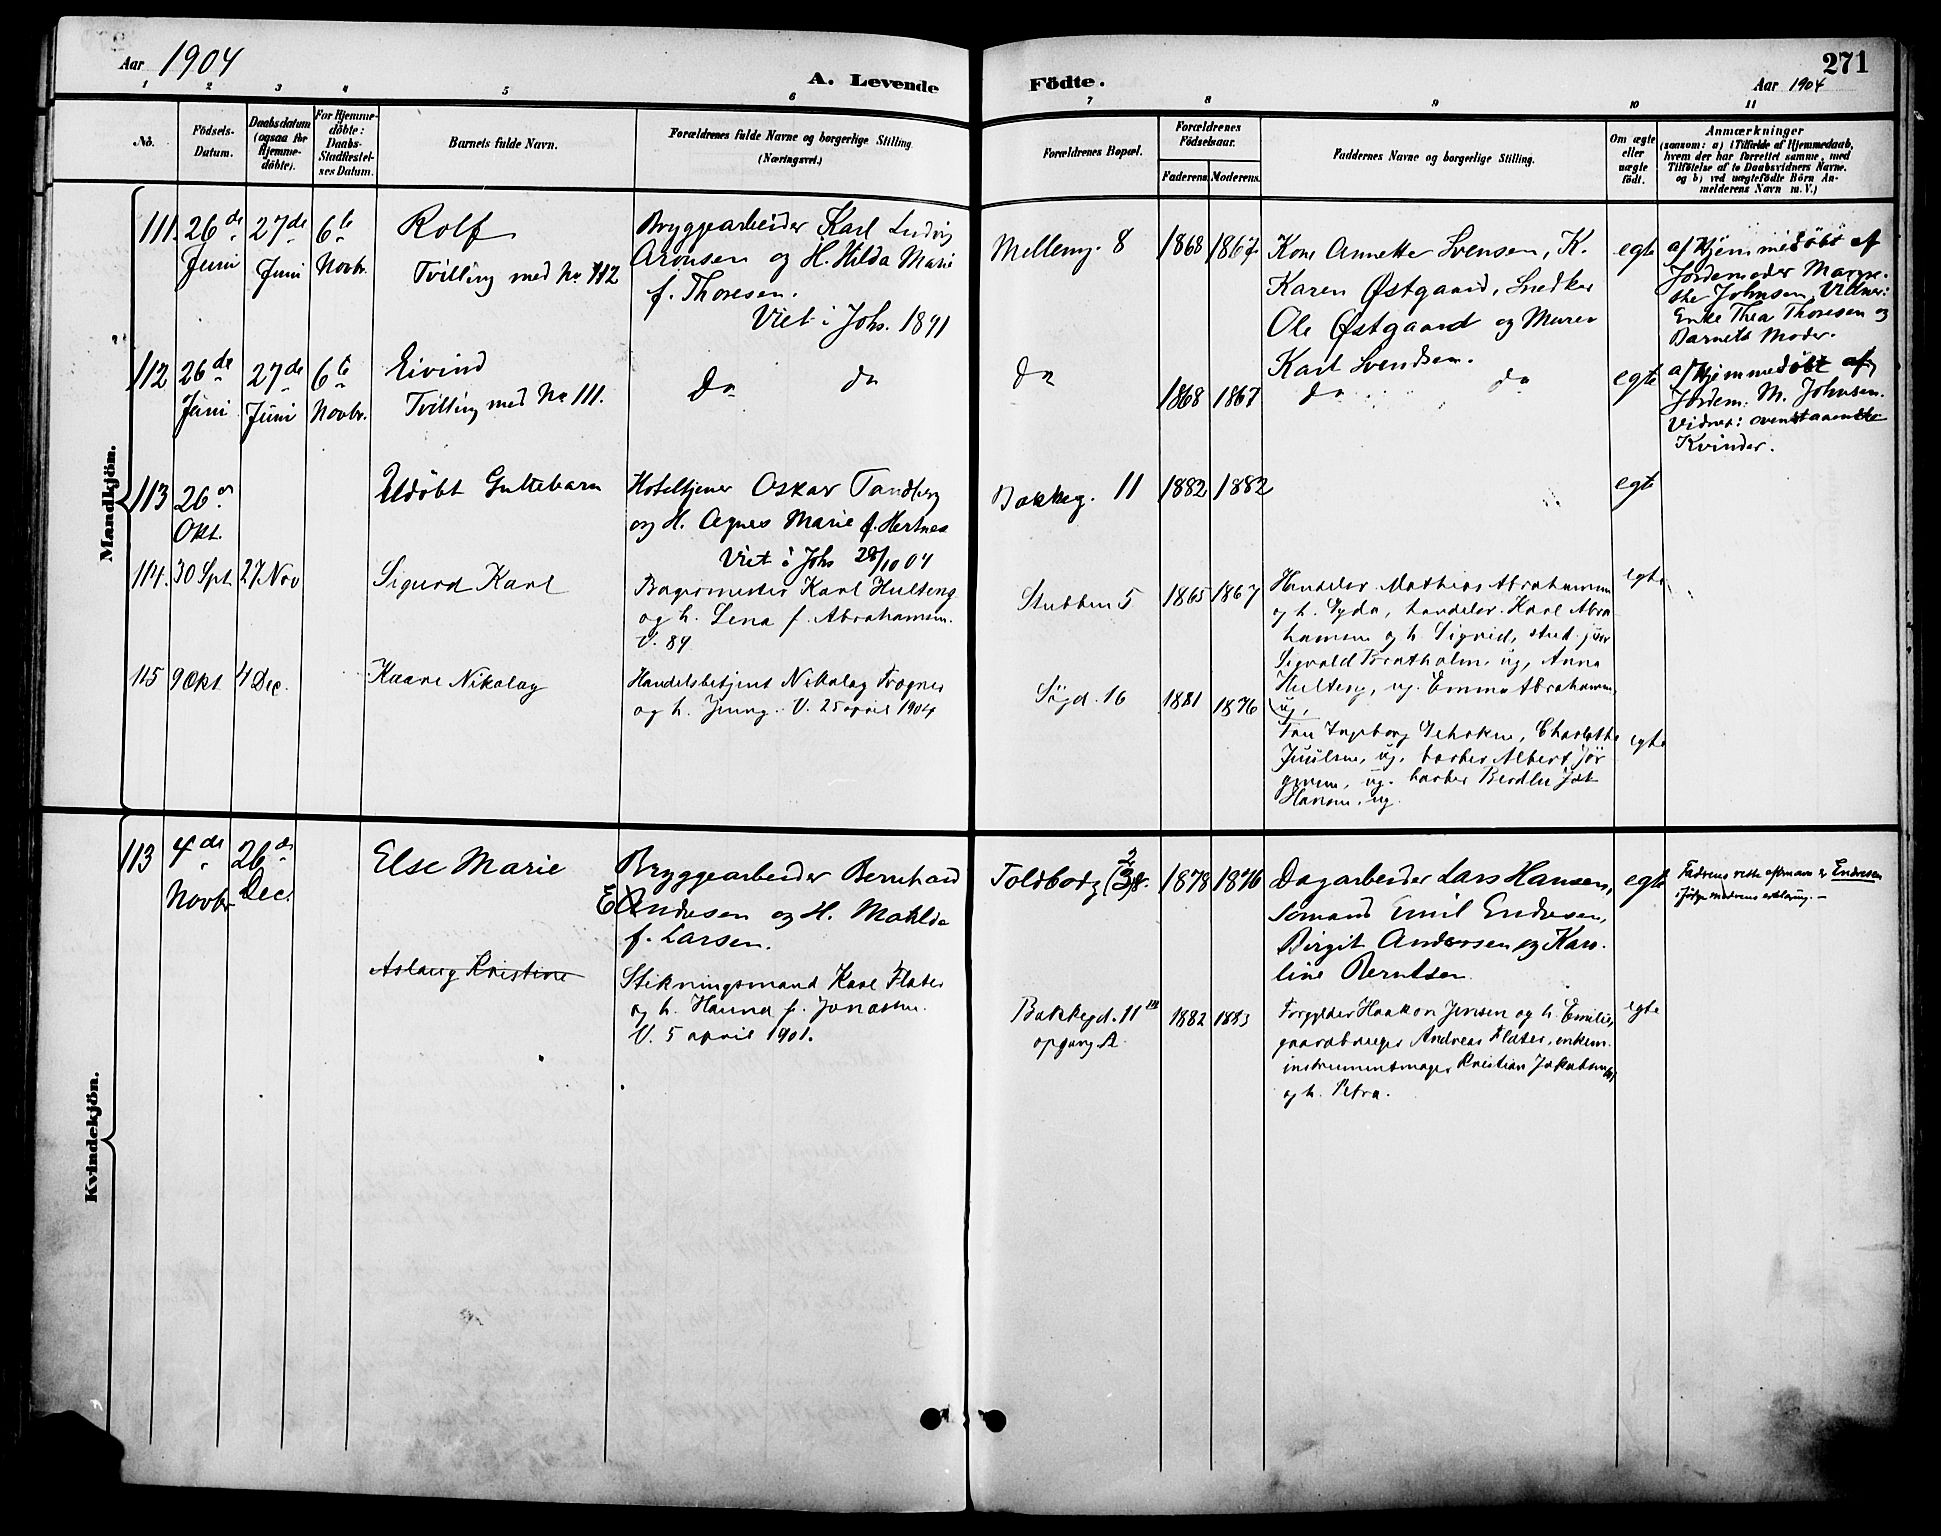 Aar 1904
A. Levende
Födte.
271
Aar 1904
1 2 3 4 5 6 7 8 9 10 11
No.
Födsels-
Datum.
Daabsdatum
(ogsaa for
Hjemme-
döbte).
For Hjemme-
döbte:
Daabs-
Stadfæstel-
ses Datum.
Barnets fulde Navn.
Forældrenes fulde Navne og borgerlige Stilling
(Næringsvei.)
Forældrenes Bopæl.
Forældrenes
Födselsaar.
Faderens. Moderens.
Faddernes Navne og borgerlige Stilling.
Om ægte
eller
uægte
födt.
Anmærkninger
(saasom: a) i Tilfælde af Hjemmedaab,
hvem der har forrettet samme, med
Tilföielse af to Daabsvidners Navne.
og b) ved uægtefödte Börn An-
melderens Navn m. V.)
Mandkjön.
111.
26de
Juni
27de
Juni
6te
Novbr.
Rolf
Tvilling med No. 112
Bryggearbeider Karl Ludvig
Aronsen og H. Hilda Marie
f. Thoresen.
Viet i Johs. 1891
Mellemg. 8
1868
1867
Kone Annette Svensen, K.
Karen Østgaard, Snedker
Ole Østgaard og Murer
Karl Svendsen.
egte
af Hjemmedöbt af
Jordemoder Margre-
the Johnsen, Vidner:
Enke Thea Thoresen og
Barnets Moder.
112
26de
Juni
27de
Juni
6te
Novbr.
Eivind
Tvilling med No 111.
do do
do
1868
1867
do do
egte
af Hjemmedöbt af
Jordem. M. Johnsen.
Vidner: ovenstaaende
Kvinder.
113
26
Okt.
Udöbt Guttebarn
Hoteltjener Oskar Tandberg
og H. Agnes Marie f. Hertnes
Viet i Johs 28/10 04
Bakkeg. 11
1882
1882
egte
114.
30 Spt.
27 Nov
Sigurd Karl
Bagermester Karl Hulteng
og h. Lena f. Abrahamsen.
V. 89
Stubben 5
1865
1867
Handelsr. Mathias Abrahamsen
og h. Gyda, handelsr. Karl Abra-
hamsen og h. Sigrid, stud. jur
Sigvald Bratholm, ug, Anna
Hulteng, ug. Emma Abrahamsen,
ug,
egte
115
9 Okt
4 Dec.
Kaare Nikolay
Handelsbetjent Nikolay Frogner
og h. V. 25 april 1904
16
1881
1876
Fru Ingeborg Charlotte
Juulsen, ug. barber Albert Jör-
gensen, ug. barber
Hansen, ug.
egte
Kvindekjön.
113
4de
Novbr
26de
Dec.
Else Marie
Bryggearbeider Bernhard
E Andresen og H. Matilde
f. Larsen.
Toldbodg
2
1878
1876
Dagarbeider Lars Hansen,
Sömand Emil Endresen,
Birgit Andersen og Karo-
line Berntsen
egte
Fadrens rette efternavn er Endresen
ifölge modrens erklæring.–
Aslaug Kristine
Stikningsmand Karl Flater
og h. Hanna f. Jonassen.
V. 5 april 1901.
Bakkegd. 11 III
opgang A.
1882
1883
Forgylder Haakon Jensen og h. Emilie,
gaardbruger Andreas Flater, enkem.
instrumentmager Kristian Jakobsen
og h. Petra.
egte